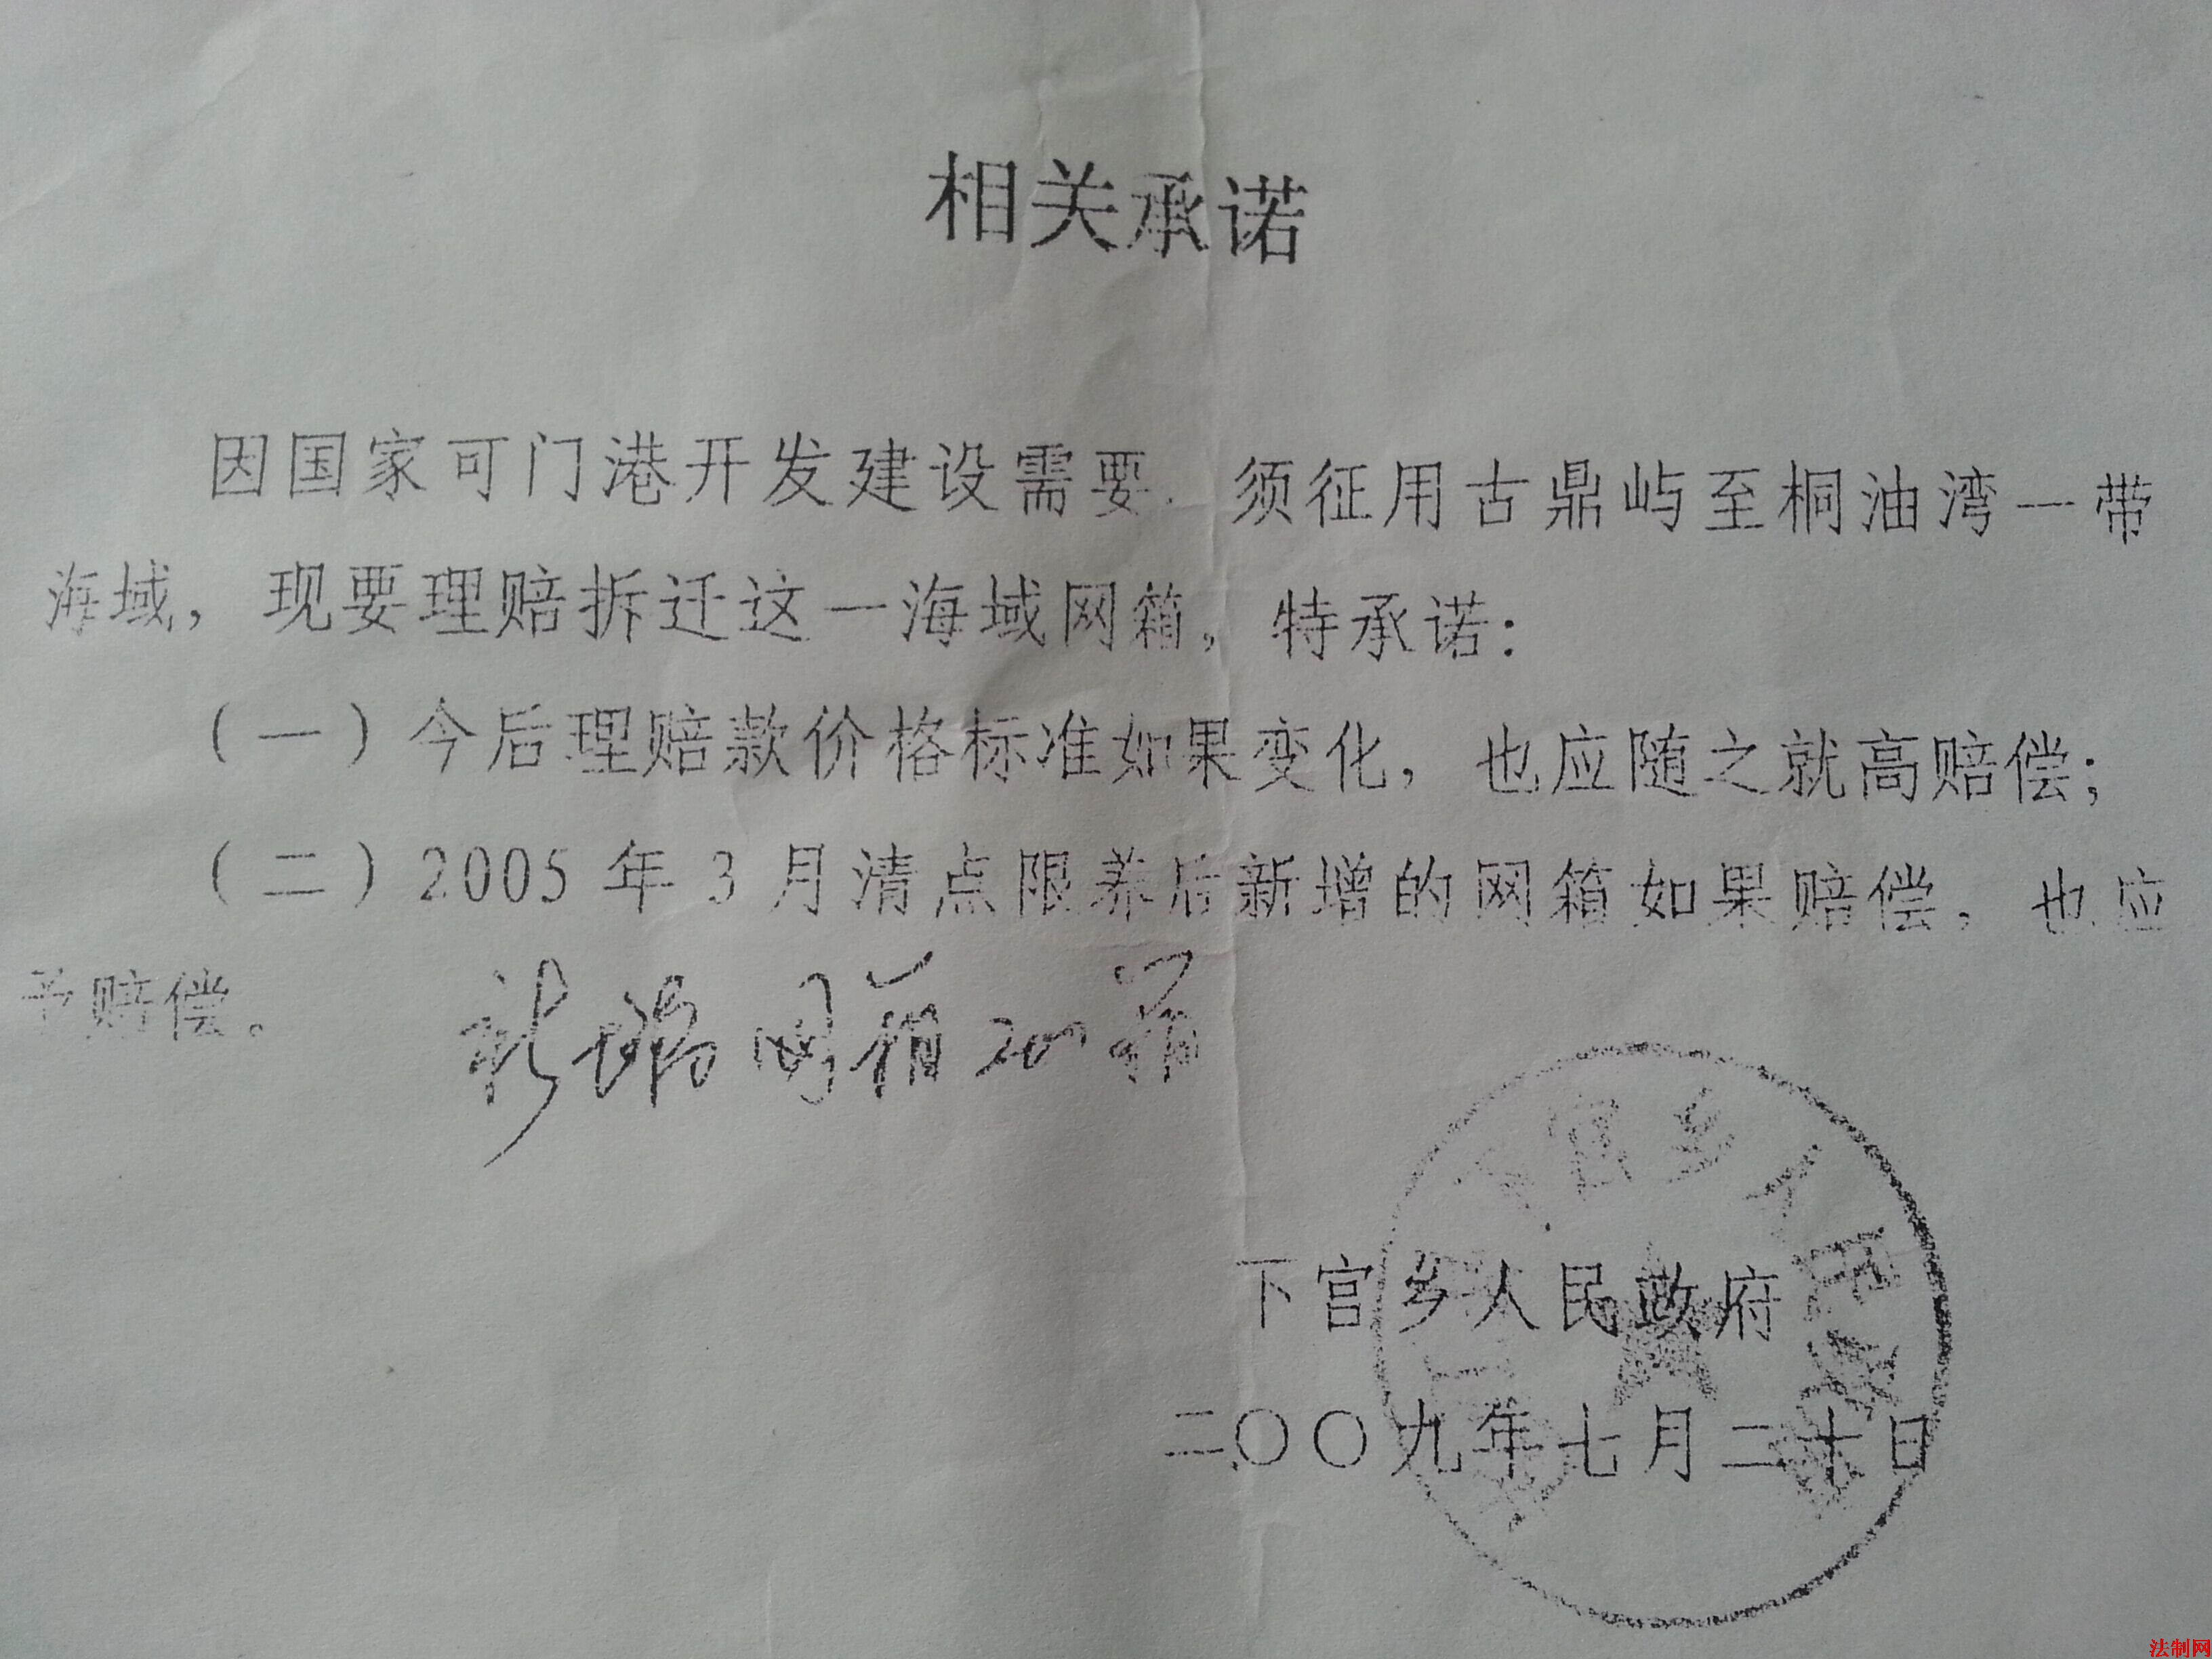 相关承诺
因国家可门港开发建设需要，须征用古鼎屿至桐油湾一带
海域，现要理赔拆迁这一海域网箱，特承诺：
（一）今后理赔款价格标准如果变化，也应随之就高赔偿；
（二）2005年3月清点限养后新增的网箱如果赔偿，也应
予赔偿。
新增网箱200箱
下宫乡人民政府
二〇〇九年七月二十日
下宫乡人民政府
法制网